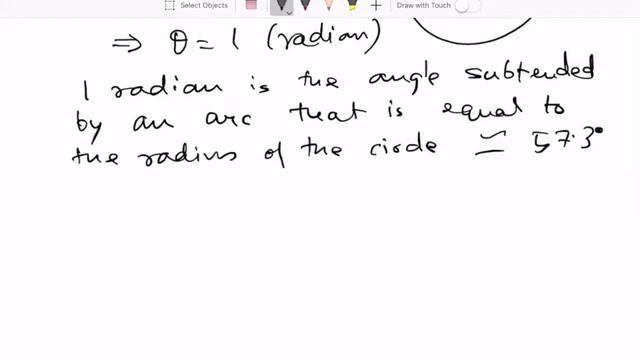 Select Objects
Draw with Touch
⇒ θ = 1 (radian)
1 radian is the angle subtended
by an arc that is equal to
the radius of the circle ≃ 57.3°